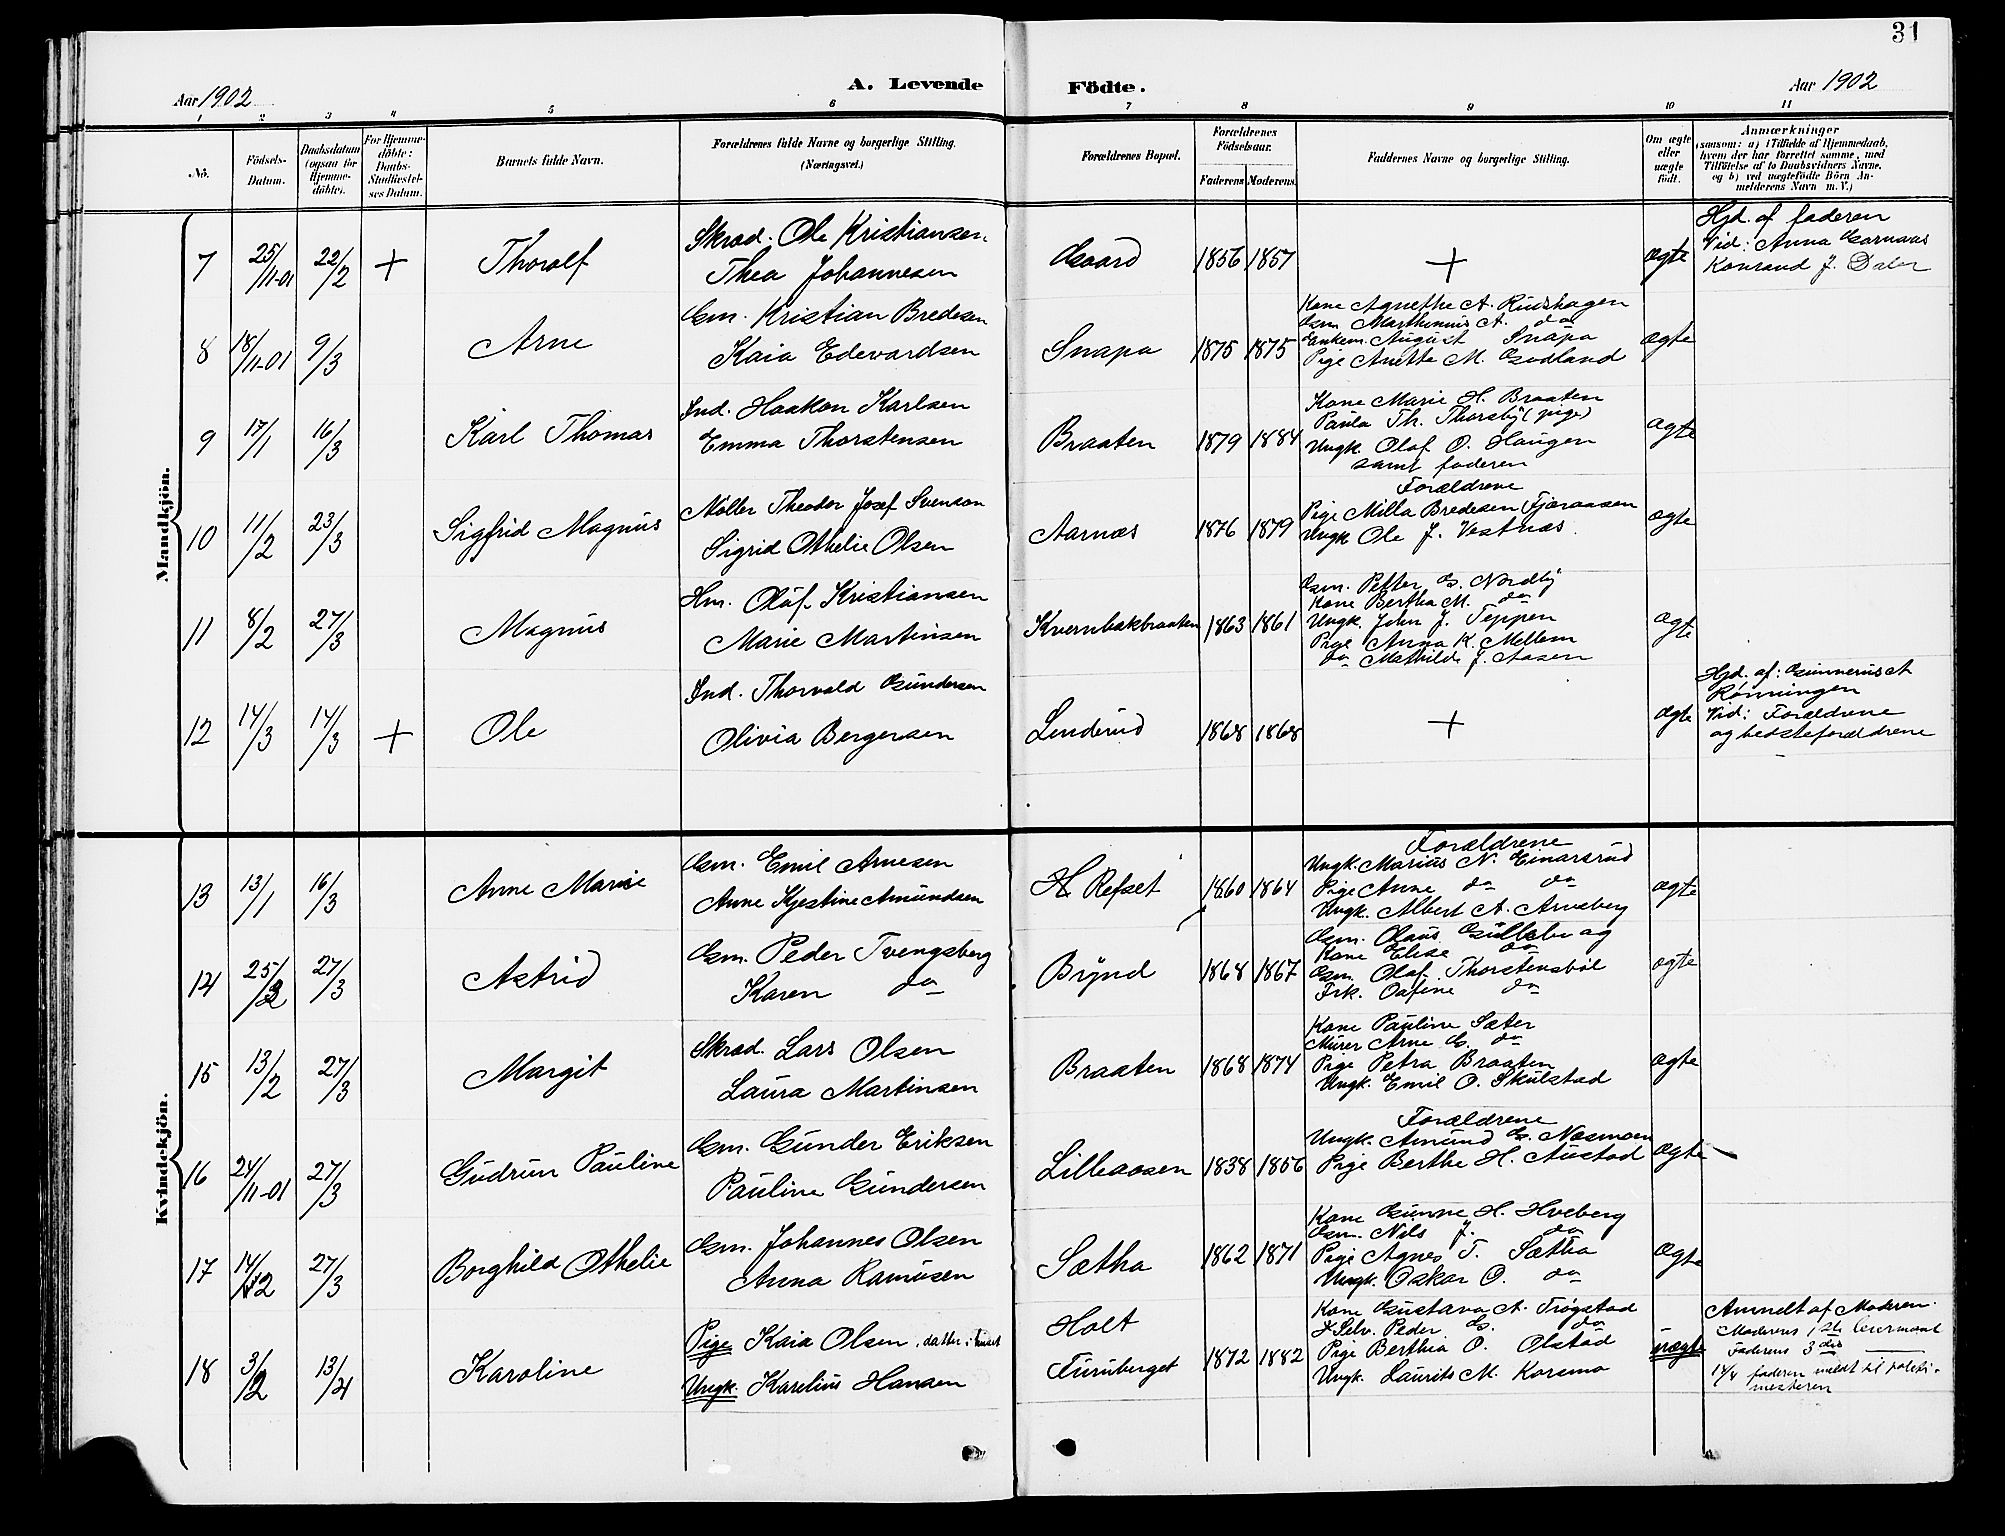 31
Aar 1902
A. Levende
Födte.
Aar 1902
1 2 3 4 5 6 7 8 9 10 11
Nö.
Födsels-
Datum.
Daabsdatum
(ogsaa for
Hjemme-
döbte).
For Hjemme-
döbte:
Daabs-
Stadfæstel-
ses Datum.
Barnets fulde Navn.
Forældrenes fulde Navne og borgerlige Stilling.
(Næringsvei.)
Forældrenes Bopæl.
Forældrenes
Födselsaar.
Faderens Moderens.
Faddernes Navne og borgerlige Stilling.
Om ægte
eller
uægte
födt.
Anmærkninger
(saasom: a) i Tilfælde af Hjemmedaab,
hvem der har forrettet samme, med
Tilföielse af to Daabsvidners Navne,
og b) ved uægtefödte Börn An-
melderens Navn m. V.)
Mandkjön.
7 25/11-01 22/2 + Thorolf
Skræd. Ole Kristiansen
Thea Johannesen
Gaard 1856 1857 + ægte
Hjd. af faderen
Vid: Anna Garnaas
Konrand J. Daler
8 18/11-01 9/3 Arne
Gm. Kristian Bredesen
Kaia Edevardsen
Snapa 1875 1875
Kone Agnethe A. Rudshagen
Gsm. Marthinius A. do
Enkem. August Snapa
Pige Anette M. Godland
ægte
9 17/1 16/3 Karl Thomas
Ind. Haakon Karlsen
Emma Thorstensen
Braaten 1879 1884
Kone Marie H. Braaten
Paula Th. Thorsby (pige)
Ungk. Olaf O. Haugen
samt faderen
ægte
10 11/2 23/3 Sigfrid Magnus
Møller Theodor Josef Svenson
Sigrid Othelie Olsen
Aarnæs 1876 1879
Forældrene
Pige Milla Bredesen Fjæraasen
Ungk Ole J. Vestnæs.
ægte
11 8/2 27/3 Magnus
Hm. Olaf Kristiansen
Marie Martinsen
Kvernbækbraaten 1863 1861
Gsm. Petter G. Nordby
Kone Bertha M. do
Ungk. John J. Teppen
Pige Anna K. Mellem
do Mathilde J. Aasen
ægte
12 14/3 14/3 + Ole
Ind. Thorvald Gundersen
Olivia Bergersen
Linderud 1868 1868 + ægte
Hjd. af: Gunnerius A
Rønningen
Vid: Forældrene
og bedsteforældrene
Kvindekjön.
13 13/1 16/3 Anne Marie
Gsm. Emil Arnesen
Anne Kjestine Amundsen
H Refset 1860 1864
Forældrene
Ungk. Marius N. Einarsrud
Pige Anne do do
Ungk. Albert A. Arneberg
ægte
14 25/2 27/3 Astrid
Gsm. Peder Tvengsberg
Karen do
Brynd 1868 1867
Gsm. Olaus Gulliksen og
Kone Elise do
Gsm. Olaf Thorstensbøl
Frk. Oafine do
ægte
15 13/2 27/3 Margit
Skræd. Lars Olsen
Laura Martinsen
Braaten 1868 1874
Kone Pauline Sæter
Murer Arne G. do
Pige Petra Braaten
Ungk. Emil O. Skulstad
ægte
16 24/11-01 27/3 Gudrun Pauline
Gsm. Gunder Eriksen
Pauline Gundersen
Lilleaasen 1838 1856
Forældrene
Ungk. Amund G. Næsmoen
Pige Berthe H. Austad
ægte
17 14/12 27/3 Borghild Othelie
Gsm. Johannes Olsen
Anna Ramusen
Sætha 1862 1871
Kone Gunne H. Hveberg
Gsm. Nils J. do
Pige Agnes T. Sætha
Ungk. Oskar O. do
ægte
18 3/2 13/4 Karoline
Pige Kaia Olsen, datter i huset
Ungk. Karelius Hansen
Holt
Furuberget 1872 1882
Kone Gustava A. Trøgstad
Selv. Peder G. do
Pige Berthia O. Olstad
Ungk. Laurits M. Korsmo
uægte
Anmeldt af Moderen.
Moderens 1ste leiermaal
Faderens 3die
14/4 faderen meldt til politi-
mesteren